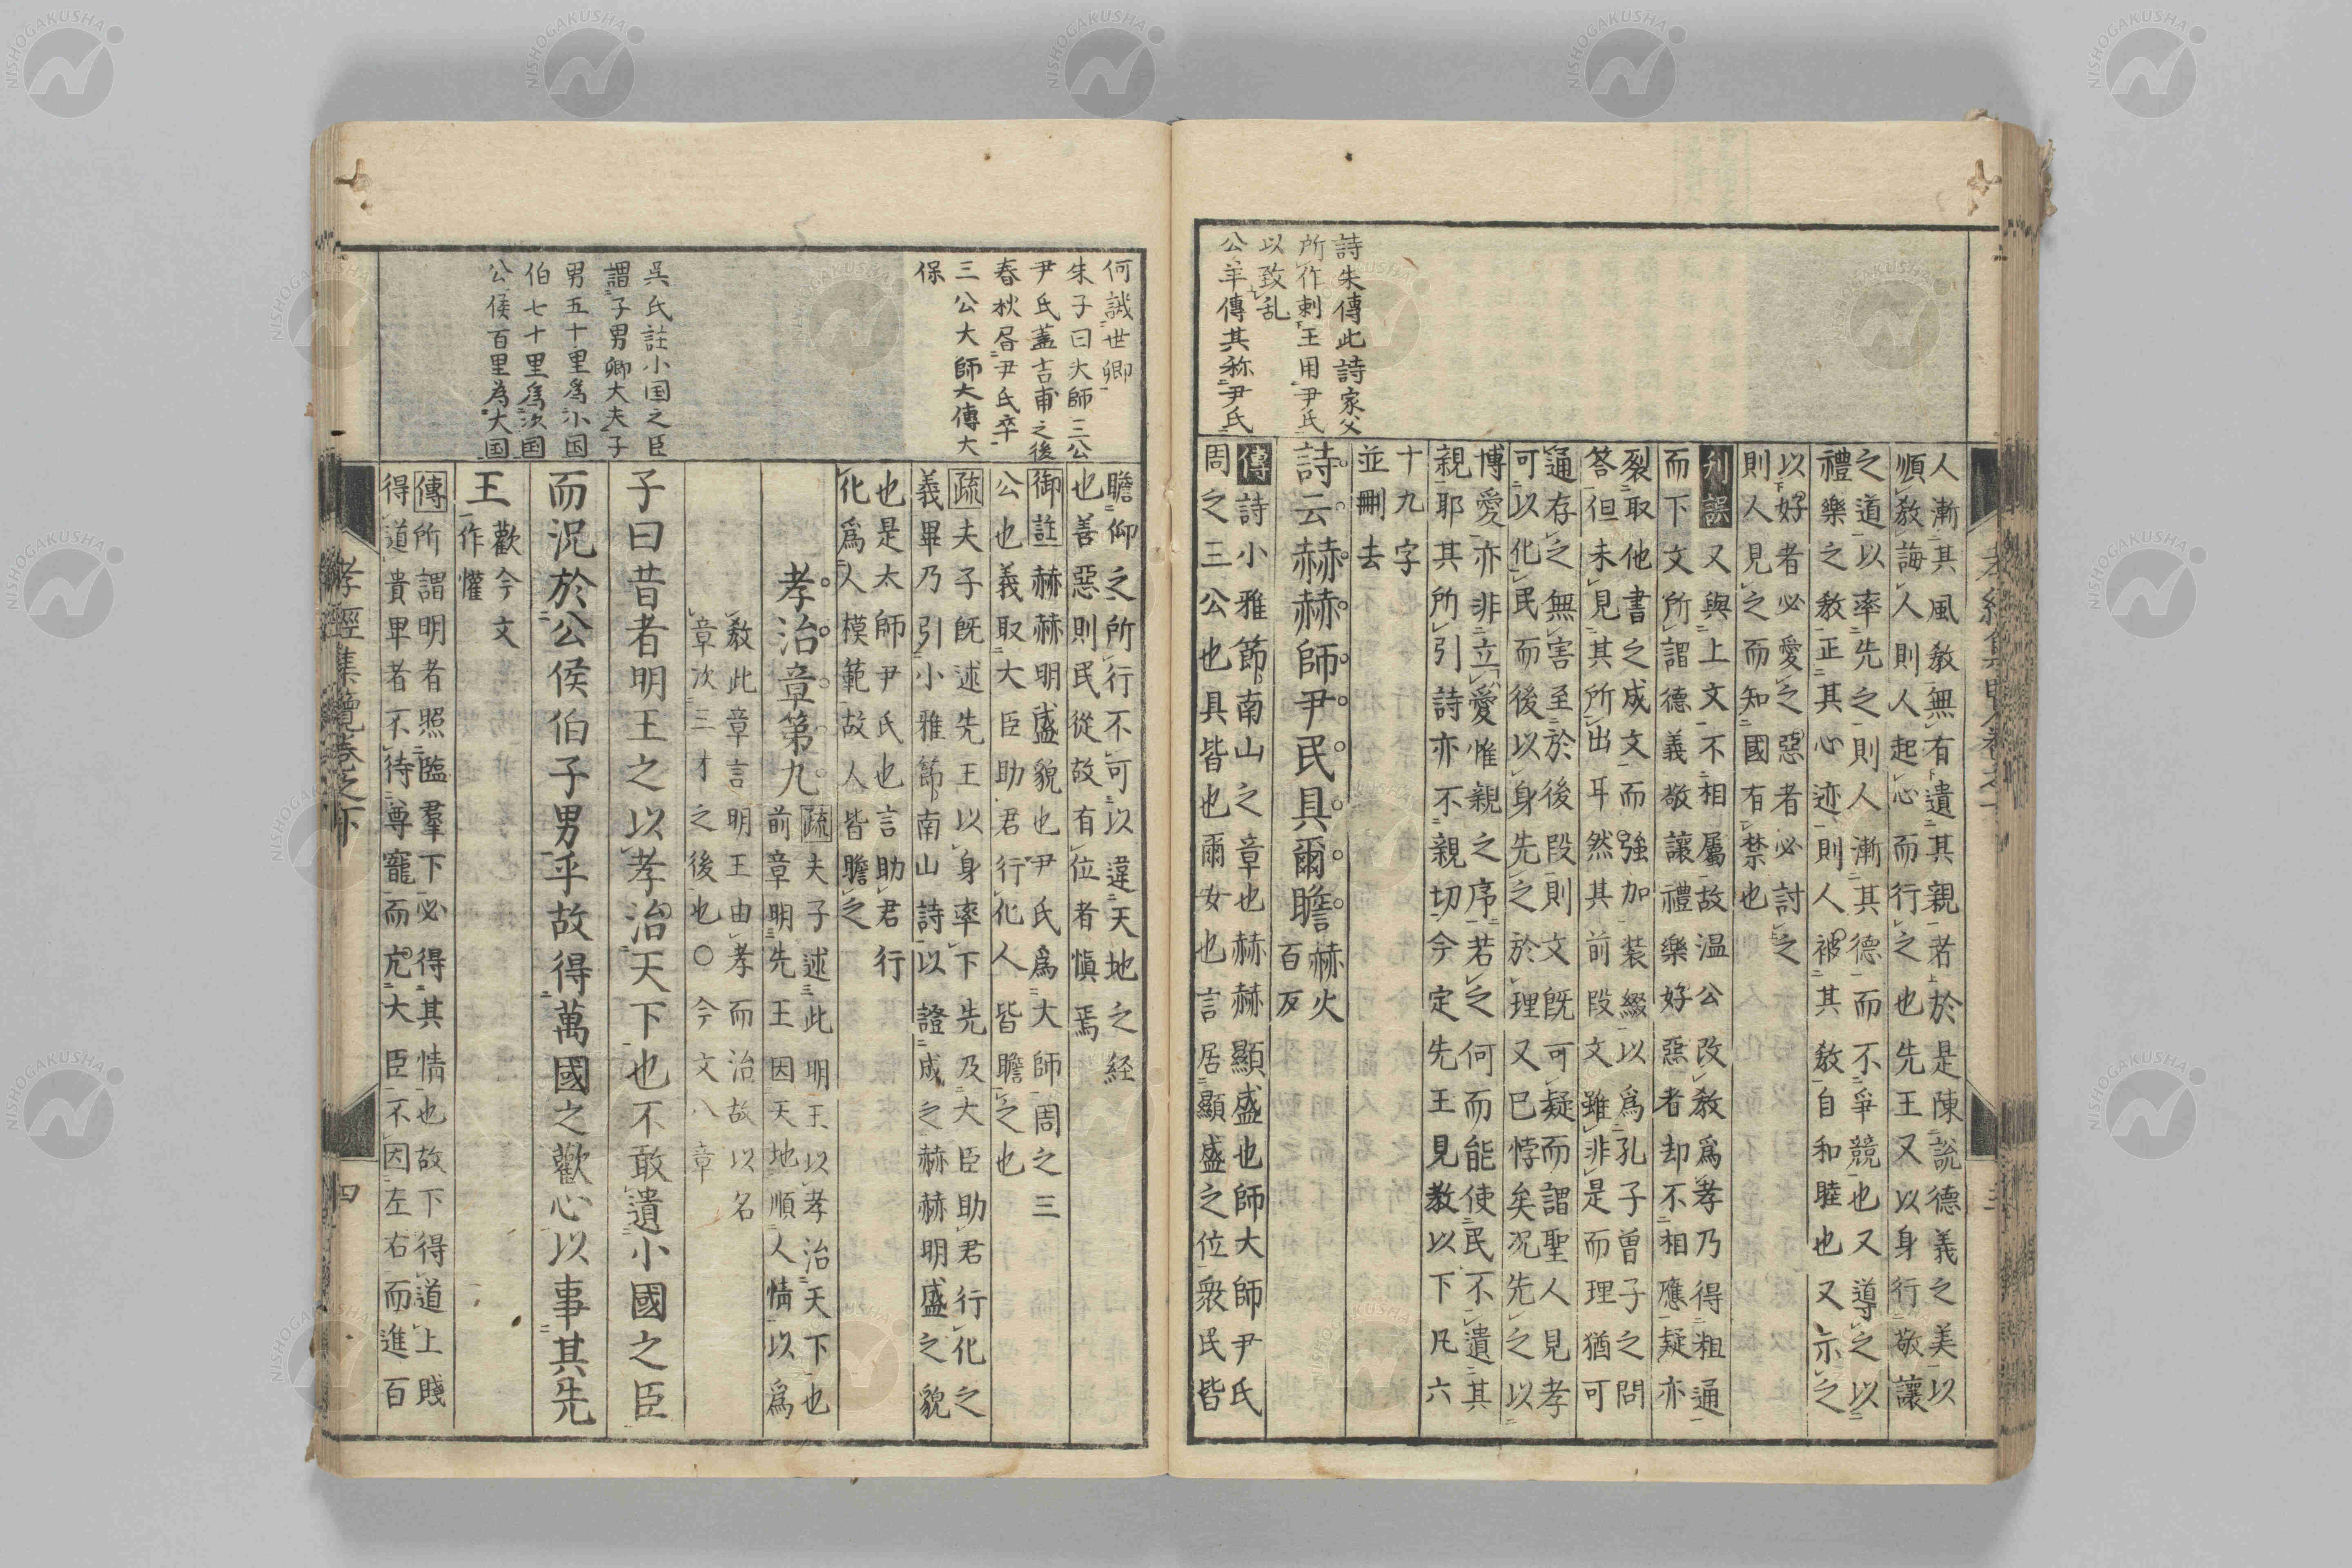 詩朱傳此詩家父
所作刺王用尹氏
以致乱
公羊傳其称尹氏
人漸其風教無有遺其親若於是陳說德義之美以
順教誨人則人起心而行之也先王又以身行敬讓
之道以率先之則人漸其德而不爭競也又導之以
禮樂之教正其心迹則人被其教自和睦也又示之
以好者必愛之惡者必討之
則人見之而知國有禁也
刋誤又與上文不相屬故温公改教爲孝乃得粗通
而下文所謂德義敬讓禮樂好惡者却不相應疑亦
裂取他書之成文而強加装綴以爲孔子曽子之問
答但未見其所出耳然其前段文雖非是而理猶可
通存之無害至於後段則文既可疑而謂聖人見孝
可以化民而後以身先之於理又已悖矣况先之以
博愛亦非立愛惟親之序若之何而能使民不遺其
親耶其所引詩亦不親切今定先王見教以下凡六
十九字
並刪去
詩云赫赫師尹民具爾瞻
赫火
百反
傳詩小雅節南山之章也赫赫顯盛也師大師尹氏
周之三公也具皆也爾女也言居顯盛之位衆民皆
孝經集覽卷之下
何譏世卿
朱子曰大師三公
尹氏蓋吉甫之後
春秋書尹氏卒
三公大師大傳大
保
吳氏註小国之臣
謂子男卿大夫子
男五十里爲小国
伯七十里爲次国
公侯百里為大国
瞻仰之所行不可以違天地之経
也善惡則民從故有位者愼焉
御註赫赫明盛貌也尹氏爲大師周之三
公也義取大臣助君行化人皆瞻之也
疏夫子旣述先王以身率下先及大臣助君行化之
義畢乃引小雅節南山詩以證成之赫赫明盛之貌
也是太師尹氏也言助君行
化爲人模範故人皆瞻之
孝治章第九
疏夫子述此明王以孝治天下也
前章明先王因天地順人情以爲
教此章言明王由孝而治故以名
章次三才之後也〇今文八章
子曰昔者明王之以孝治天下也不敢遺小國之臣
而況於公侯伯子男乎故得萬國之歡心以事其先
王
歡今文
作懽
傳所謂明者照臨羣下必得其情也故下得道上賤
得道貴卑者不待尊寵而亢大臣不因左右而進百
孝經集覽卷之下
四